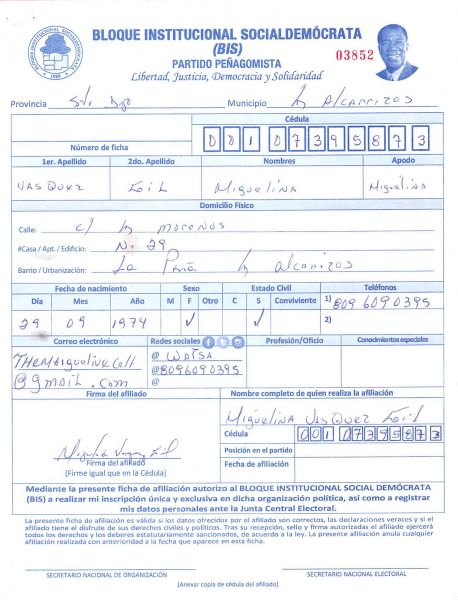 BLOQUE INSTITUCIONAL SOCIALDEMÓCRATA
(BIS)
PARTIDO PEÑAGOMISTA
Libertad, Justicia, Democracia y Solidaridad
03852
BLOQUE INSTITUCIONAL SOCIALDEMOCRATA
Provincia Sto Dgo Municipio Los Alcarrizos
Cédula
Número de ficha 001 0739587 3
1er. Apellido 2do. Apellido Nombres Apodo
VASQUEZ Miguelina Miguelina
Domicilio Físico
Calle: c/ los morenos
#Casa / Apt. / Edificio: N. 29
Barrio / Urbanización: La Peña Los alcarrizos
Fecha de nacimiento Sexo Estado Civil Teléfonos
Día Mes Año M F Otro C S Conviviente 1) 809 6090395
29 09 1974 ✓ ✓ 2)
Correo electrónico Redes sociales Profesión/Oficio Conocimientos especiales
@ WATSA
@8096090395
@
@gmail.com
Firma del afiliado Nombre completo de quien realiza la afiliación
Miguelina VASQUEZ
Cédula 001 0739587 3
Posición en el partido
Fecha de afiliación
Firma del afiliado
(Firme igual que en la Cédula)
Mediante la presente ficha de afiliación autorizo al BLOQUE INSTITUCIONAL SOCIAL DEMÓCRATA
(BIS) a realizar mi inscripción única y exclusiva en dicha organización política, así como a registrar
mis datos personales ante la Junta Central Electoral.
La presente ficha de afiliación es válida si los datos ofrecidos por el afiliado son correctos, las declaraciones veraces y si el
afiliado tiene el disfrute de sus derechos civiles y políticos. Tras su recepción, sello y firma autorizados el afiliado ejercerá
todos los derechos y los deberes estatutariamente sancionados, de acuerdo a la ley. La presente afiliación anula cualquier
afiliación realizada con anterioridad a la fecha que aparece en esta ficha.
SECRETARIO NACIONAL DE ORGANIZACIÓN SECRETARIO NACIONAL ELECTORAL
(Anexar copia de cédula del afiliado)